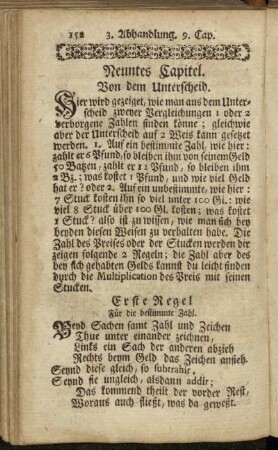 152 3. Abhandlung. 9. Cap.
Neuntes Capitel.
Von dem Unterscheid.
Hier wird gezeiget, wie man aus dem Unter-
scheid zweyer Vergleichungen 1 oder 2
verborgene Zahlen finden könne; gleichwie
aber der Unterscheid auf 2 Weis kann gesetzt
werden. 1. Auf ein bestimmte Zahl, wie hier:
zahlt er 6 Pfund, so bleiben ihm von seinem Geld
50 Batzen, zahlt er 12 Pfund, so bleiben ihm
2 Bz.; was kostet 1 Pfund, und wie viel Geld
hat er? oder 2. Auf ein unbestimmte, wie hier:
7 Stuck kosten ihn so viel unter 100 Gl.: wie
viel 8 Stuck über 100 Gl. kosten; was kostet
1 Stuck? also ist zu wissen, wie man sich bey
beyden diesen Weisen zu verhalten habe. Die
Zahl des Preises oder der Stucken werden dir
zeigen folgende 2 Regeln; die Zahl aber des
bey sich gehabten Gelds kannst du leicht finden
durch die Multiplication des Preis mit seinen
Stucken.
Erste Regel
Für die bestimmte Zahl.
Beyd Sachen samt Zahl und Zeichen
Thue unter einander zeichnen,
Links ein Sach der anderen abzieh
Rechts beym Geld das Zeichen ansieh.
Seynd diese gleich, so subtrahir,
Seynd sie ungleich, alsdann addir;
Das kommend theilt der vorder Rest,
Woraus auch fließt, was da gewest.